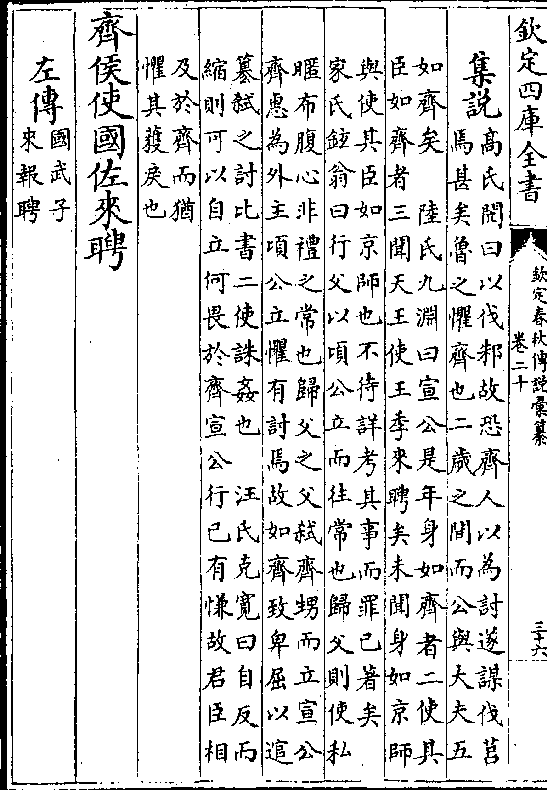 欽定四庫全書
欽定春秋傳說彙纂
卷二十
三十六
集說
高氏閌曰以伐邾故恐齊人以為討遂謀伐莒
焉甚矣魯之懼齊也二歲之間而公與大夫五
如齊矣 陸氏九淵曰宣公是年身如齊者二使其
臣如齊者三聞天王使王季來聘矣未聞身如京師
與使其臣如京師也不待詳考其事而罪已著矣
家氏鉉翁曰行父以頃公立而往常也歸父則使私
暱布腹心非禮之常也歸父之父弒齊甥而立宣公
齊惠為外主頃公立懼有討焉故如齊致卑屈以逭
篡弒之討比書二使誅姦也 汪氏克寬曰自反而
縮則可以自立何畏於齊宣公行已有慊故君臣相
及於齊而猶
懼其獲戾也
齊侯使國佐來聘
左傳
國武子
來報聘